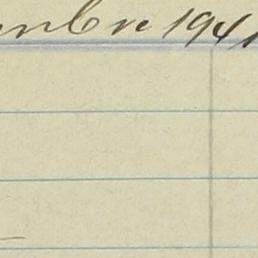 mbre 1941